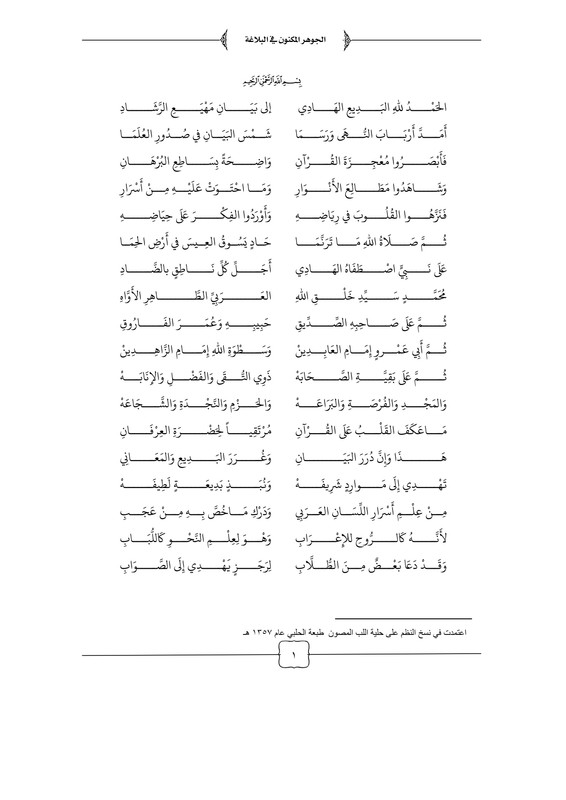 الجوهر المكنون في البلاغة
بِسْمِ اللَّهِ الرَّحْمَنِ الرَّحِيمِ
الحَمْدُ للهِ البَدِيعِ الهَادِي إلى بَيَانِ مَهْيَعِ الرَّشَادِ
أَمَدَّ أَرْبَابَ النُّهَى وَرَسَمَا شَمْسَ البَيَانِ في صُدُورِ العُلَمَا
فَأَبْصَرُوا مُعْجِزَةَ القُرْآنِ وَاضِحَةً بِسَاطِعِ البُرْهَانِ
وَشَاهَدُوا مَطَالِعَ الأَنْوَارِ وَمَا احْتَوَتْ عَلَيْهِ مِنْ أَسْرَارِ
فَنَزَّهُوا القُلُوبَ في رِيَاضِهِ وَأَوْرَدُوا الفِكْرَ عَلَى حِيَاضِهِ
ثُمَّ صَلَاةُ اللهِ مَا تَرَنَّمَا حَادٍ يَسُوقُ العِيسَ في أَرْضِ الحِمَا
عَلَى نَبِيٍّ اصْطَفَاهُ الهَادِي أَجَلِّ كُلِّ نَاطِقٍ بالضَّادِ
مُحَمَّدٍ سَيِّدِ خَلْقِ اللهِ العَرَبِيِّ الطَّاهِرِ الأَوَّاهِ
ثُمَّ عَلَى صَاحِبِهِ الصِّدِّيقِ حَبِيبِهِ وَعُمَرَ الفَارُوقِ
ثُمَّ أَبِي عَمْرٍو إِمَامِ العَابِدِينْ وَسَطْوَةِ اللهِ إِمَامِ الزَّاهِدِينْ
ثُمَّ عَلَى بَقِيَّةِ الصَّحَابَهْ ذَوِي التُّقَى وَالفَضْلِ وَالإِنَابَهْ
وَالمَجْدِ وَالفُرْصَةِ وَالبَرَاعَهْ وَالحَزْمِ وَالنَّجْدَةِ وَالشَّجَاعَهْ
مَاعَكَفَ القَلْبُ عَلَى القُرْآنِ مُرْتَقِياً لِحَضْرَةِ العِرْفَانِ
هَذَا وَإِنَّ دُرَرَ البَيَانِ وَغُرَرَ البَدِيعِ وَالمَعَانِي
تَهْدِي إِلَى مَوارِدٍ شَرِيفَهْ وَنُبَذٍ بَدِيعَةٍ لَطِيفَهْ
مِنْ عِلْمِ أَسْرَارِ اللِّسَانِ العَرَبِي وَدَرْكِ مَاخُصَّ بِهِ مِنْ عَجَبِ
لأَنَّهُ كَالرُّوحِ للإِعْرَابِ وَهْوَ لِعِلْمِ النَّحْوِ كَاللُّبَابِ
وَقَدْ دَعَا بَعْضٌ مِنَ الطُّلَّابِ لِرَجَزٍ يَهْدِي إِلَى الصَّوَابِ
اعتمدت في نسخ النظم على حلية اللب المصون طبعة الحلبي عام ١٣٥٧ هـ
١